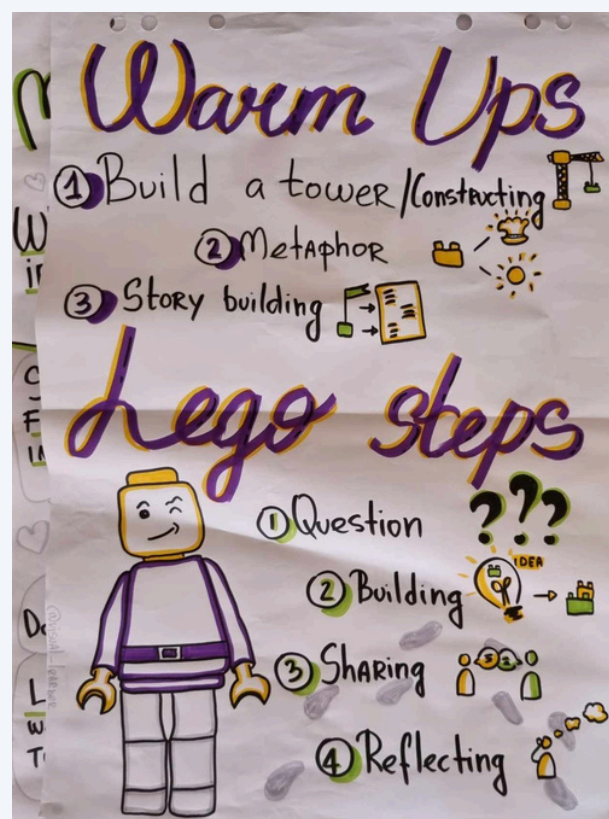 Warm Ups
1 Build a tower/Constructing
2 Metaphor
3 Story building
Lego steps
1 Question ???
IDEA
2 Building
3 Sharing
4 Reflecting